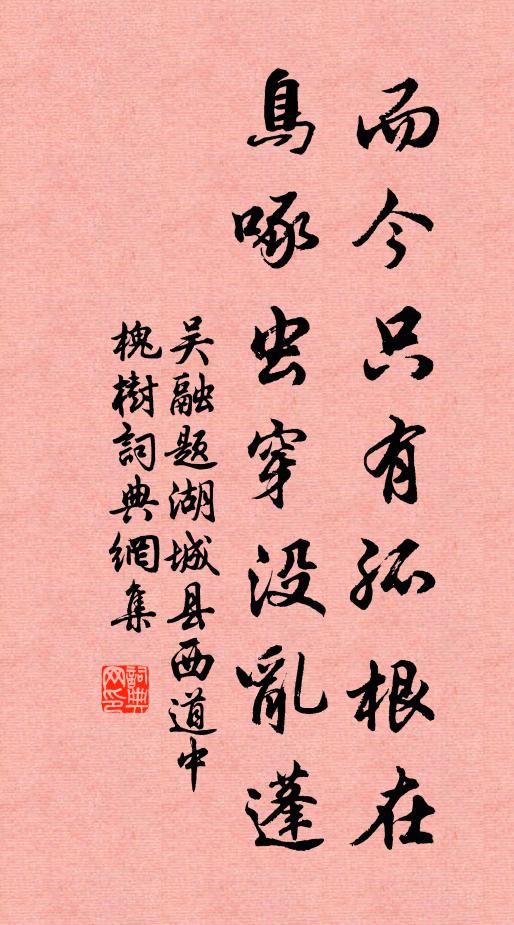 而今只有孤根在
鳥啄虫穿没亂蓬
吴融题湖城县西道中
槐樹詞典網集
詞典网印